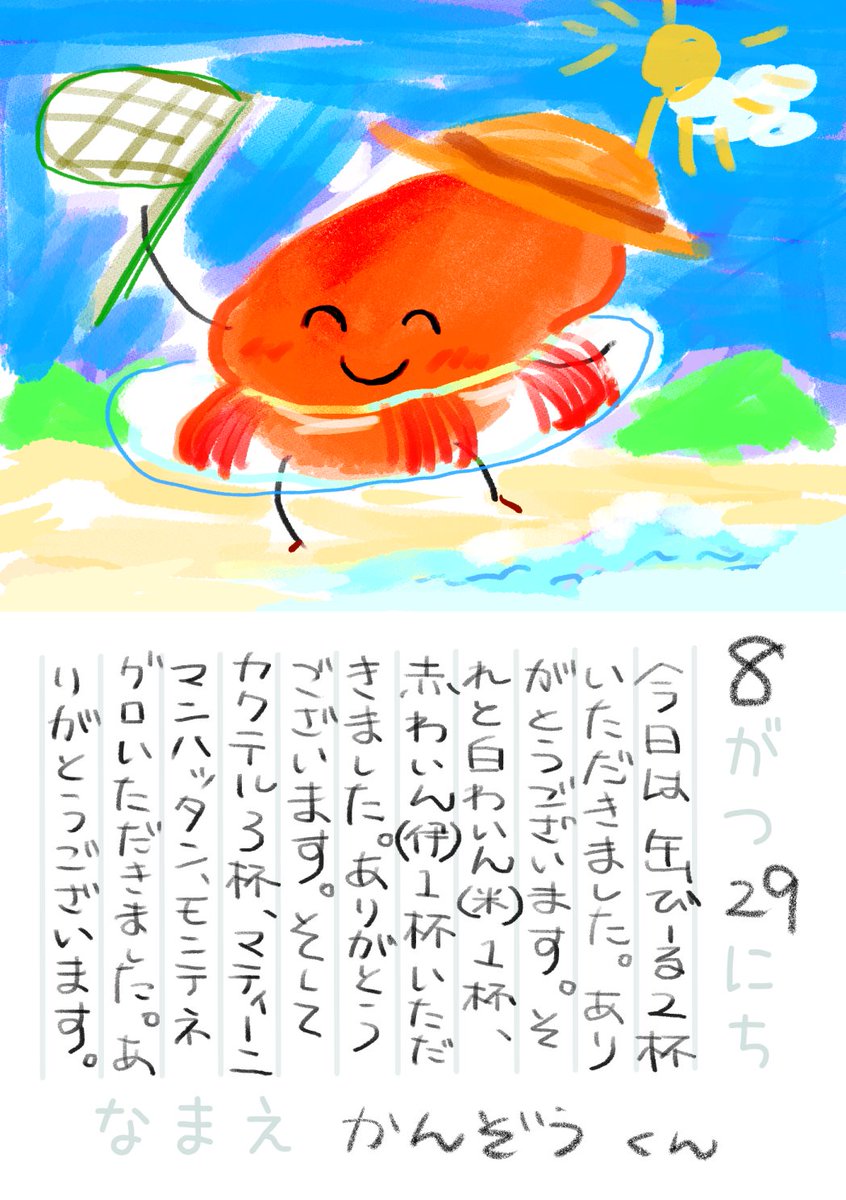 8がつ29にち
今日は缶びーる2杯
いただきました。あり
がとうございます。そ
れと白わいん(米)1杯、
赤わいん(伊)1杯いただ
きました。ありがとう
ございます。そして
カクテル3杯、マティーニ
マンハッタン、モニテネ
グロいただきました。あ
りがとうございます。
なまえ かんぞうくん